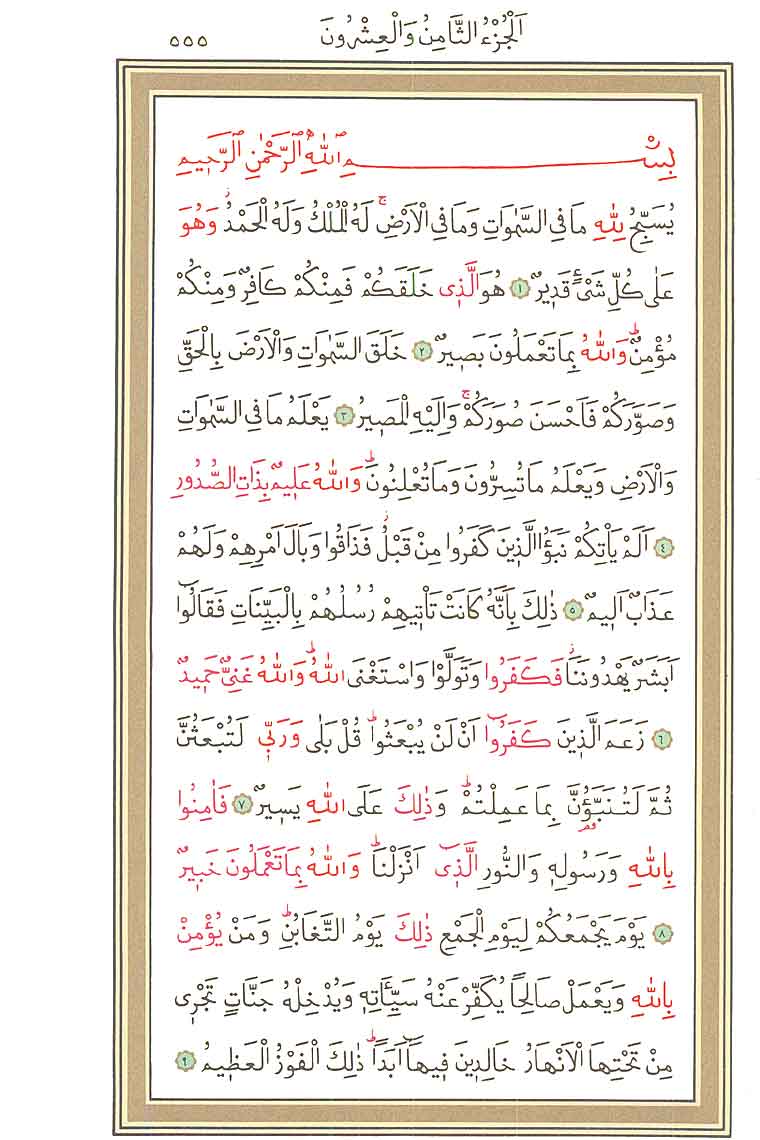 اَلْجُزْءُ الثَّامِنُ وَالْعِشْرُونَ ٥٥٥
بِسْمِ اللّٰهِ الرَّحْمٰنِ الرَّحٖيمِ
يُسَبِّحُ لِلّٰهِ مَا فِي السَّمٰوَاتِ وَمَا فِي الْاَرْضِۚ لَهُ الْمُلْكُ وَلَهُ الْحَمْدُؗ وَهُوَ
عَلٰى كُلِّ شَيْءٍ قَدٖيرٌ ١ هُوَ الَّذٖي خَلَقَكُمْ فَمِنْكُمْ كَافِرٌ وَمِنْكُمْ
مُؤْمِنٌؕ وَاللّٰهُ بِمَا تَعْمَلُونَ بَصٖيرٌ ٢ خَلَقَ السَّمٰوَاتِ وَالْاَرْضَ بِالْحَقِّ
وَصَوَّرَكُمْ فَاَحْسَنَ صُوَرَكُمْۚ وَاِلَيْهِ الْمَصٖيرُ ٣ يَعْلَمُ مَا فِي السَّمٰوَاتِ
وَالْاَرْضِ وَيَعْلَمُ مَا تُسِرُّونَ وَمَا تُعْلِنُونَؕ وَاللّٰهُ عَلٖيمٌ بِذَاتِ الصُّدُورِ
٤ اَلَمْ يَأْتِكُمْ نَبَؤُا الَّذٖينَ كَفَرُوا مِنْ قَبْلُؗ فَذَاقُوا وَبَالَ اَمْرِهِمْ وَلَهُمْ
عَذَابٌ اَلٖيمٌ ٥ ذٰلِكَ بِاَنَّهُ كَانَتْ تَأْتٖيهِمْ رُسُلُهُمْ بِالْبَيِّنَاتِ فَقَالُٓوا
اَبَشَرٌ يَهْدُونَنَاؗ فَكَفَرُوا وَتَوَلَّوْا وَاسْتَغْنَى اللّٰهُؕ وَاللّٰهُ غَنِيٌّ حَمٖيدٌ
٦ زَعَمَ الَّذٖينَ كَفَرُٓوا اَنْ لَنْ يُبْعَثُواؕ قُلْ بَلٰى وَرَبّٖي لَتُبْعَثُنَّ
ثُمَّ لَتُنَبَّؤُنَّ بِمَا عَمِلْتُمْؕ وَذٰلِكَ عَلَى اللّٰهِ يَسٖيرٌ ٧ فَاٰمِنُوا
بِاللّٰهِ وَرَسُولِهٖ وَالنُّورِ الَّذٖٓي اَنْزَلْنَاؕ وَاللّٰهُ بِمَا تَعْمَلُونَ خَبٖيرٌ
٨ يَوْمَ يَجْمَعُكُمْ لِيَوْمِ الْجَمْعِ ذٰلِكَ يَوْمُ التَّغَابُنِؕ وَمَنْ يُؤْمِنْ
بِاللّٰهِ وَيَعْمَلْ صَالِحًا يُكَفِّرْ عَنْهُ سَيِّـَٔاتِهٖ وَيُدْخِلْهُ جَنَّاتٍ تَجْرٖي
مِنْ تَحْتِهَا الْاَنْهَارُ خَالِدٖينَ فٖيهَٓا اَبَدًاؕ ذٰلِكَ الْفَوْزُ الْعَظٖيمُ ٩